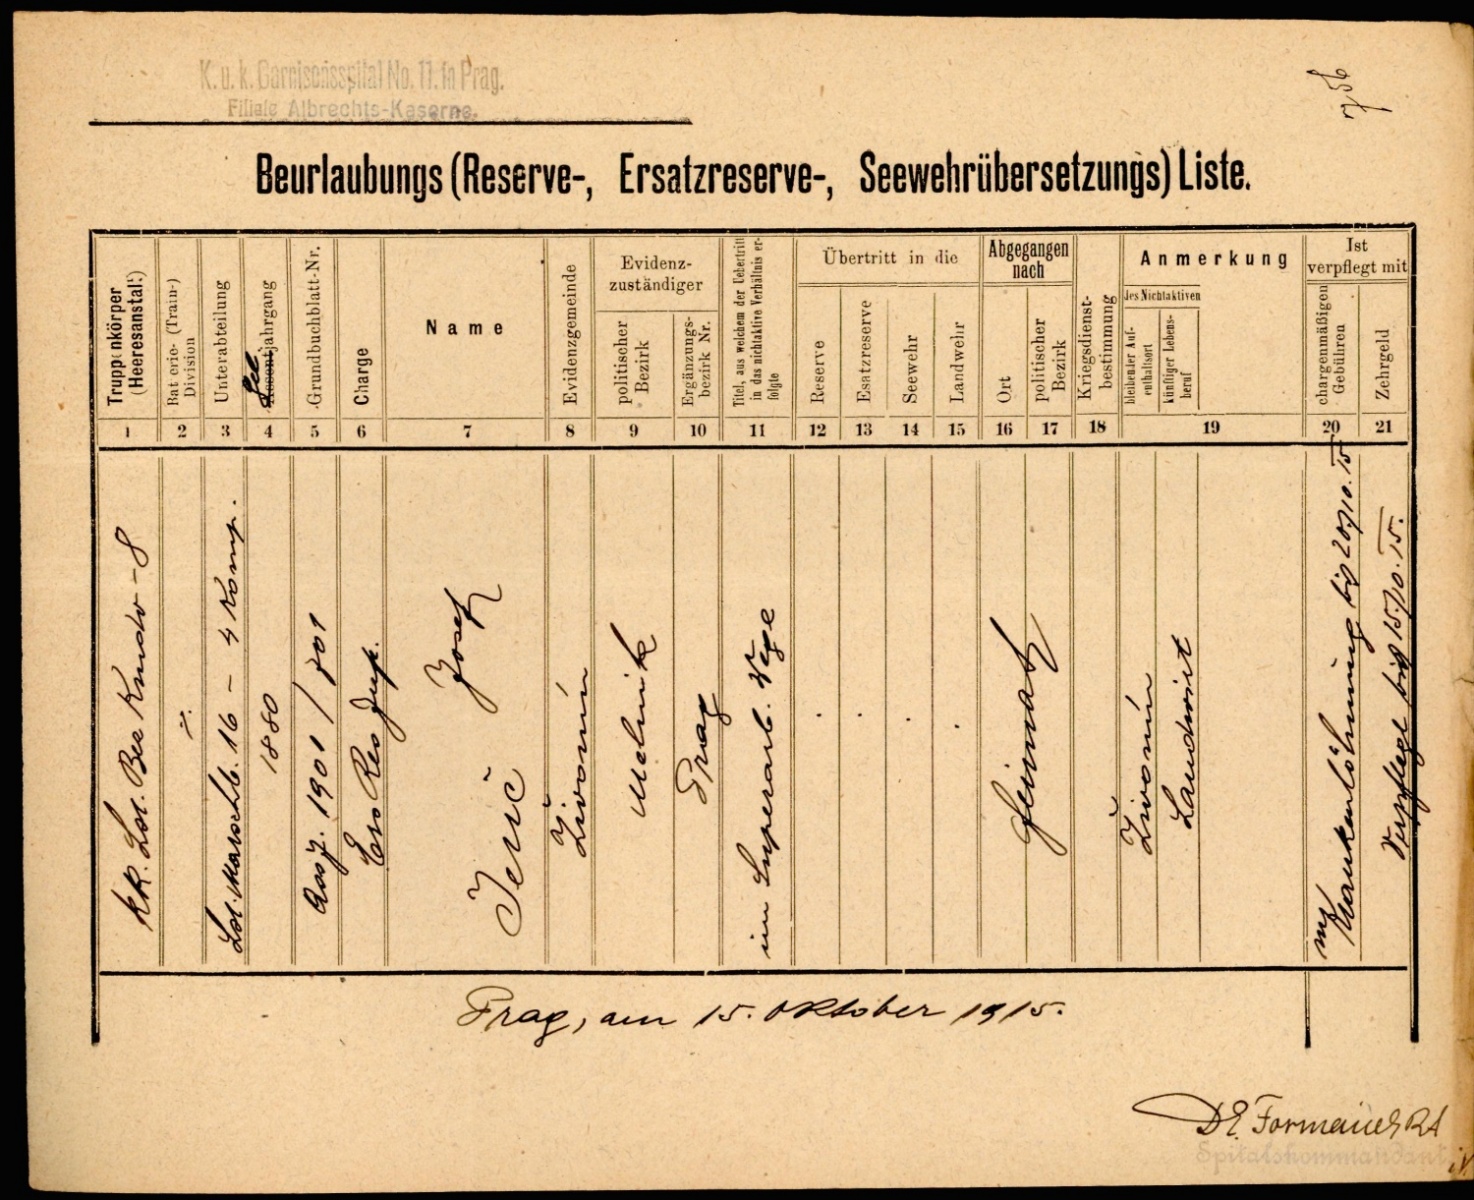 K. u. k. Garnisonsspital No. 11. in Prag.
Filiale Albrechts-Kaserne.
756
Beurlaubungs (Reserve-, Ersatzreserve-, Seewehrübersetzungs) Liste.
Truppenkörper (Heeresanstalt)
Batterie- (Train-) Division
Unterabteilung
Assentjahrgang
Grundbuchblatt-Nr.
Charge
Name
Evidenzgemeinde
Evidenz-
zuständiger
politischer Bezirk
Ergänzungs-
bezirk Nr.
Titel, aus welchem der Uebertritt
in das nichtaktive Verhältnis er-
folgte
Übertritt in die
Reserve
Esatzreserve
Seewehr
Landwehr
Abgegangen
nach
Ort
politischer
Bezirk
Kriegsdienst-
bestimmung
Anmerkung
des Nichtaktiven
bleibender Auf-
enthaltsort
künftiger Lebens-
beruf
Ist
verpflegt mit
chargenmäßigen
Gebühren
Zehrgeld
1 2 3 4 5 6 7 8 9 10 11 12 13 14 15 16 17 18 19 20 21
kk. Lst. Bez Kmdo - 8
Lst. Marschb. 16 - 4 Komp.
1880
1901 / 701
Ers Res Inf.
Jenč Josef
Živonín
Melnik
Prag
im Superarb. Wege
Heimat
Živonín
Landwirt
Krankenlöhnung bis 20/10. 15
Verpflegt bis 15/10. 15.
Prag, am 15. Oktober 1915.
Spitalskommandant